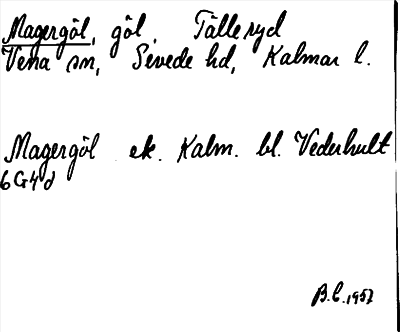 Magergöl, göl, Tälleryd
Vena sn, Sevede hd, Kalmar l.
Magergöl ek. Kalm. bl. Vederhult
6G4d
B.C. 1957